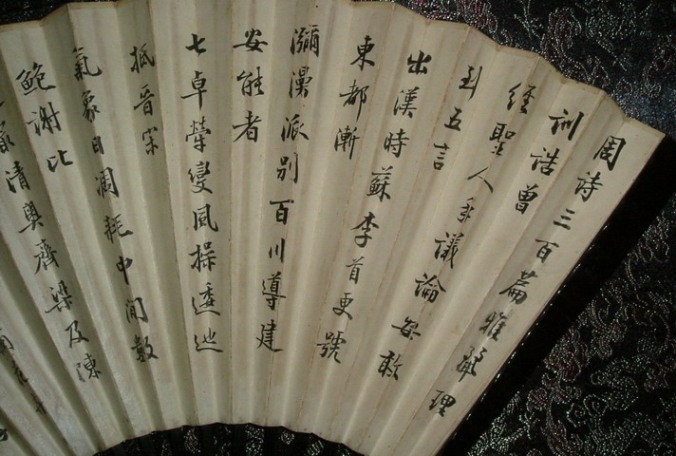 周詩三百篇雅麗理
訓誥曾
經聖人手議論安敢
到五言
出漢時蘇李首更號
東都漸
瀰漫派別百川導建
安能者
七卓犖變風操逶迤
抵晉宋
氣象日凋耗中間數
鮑謝比
清奧齊梁及陳